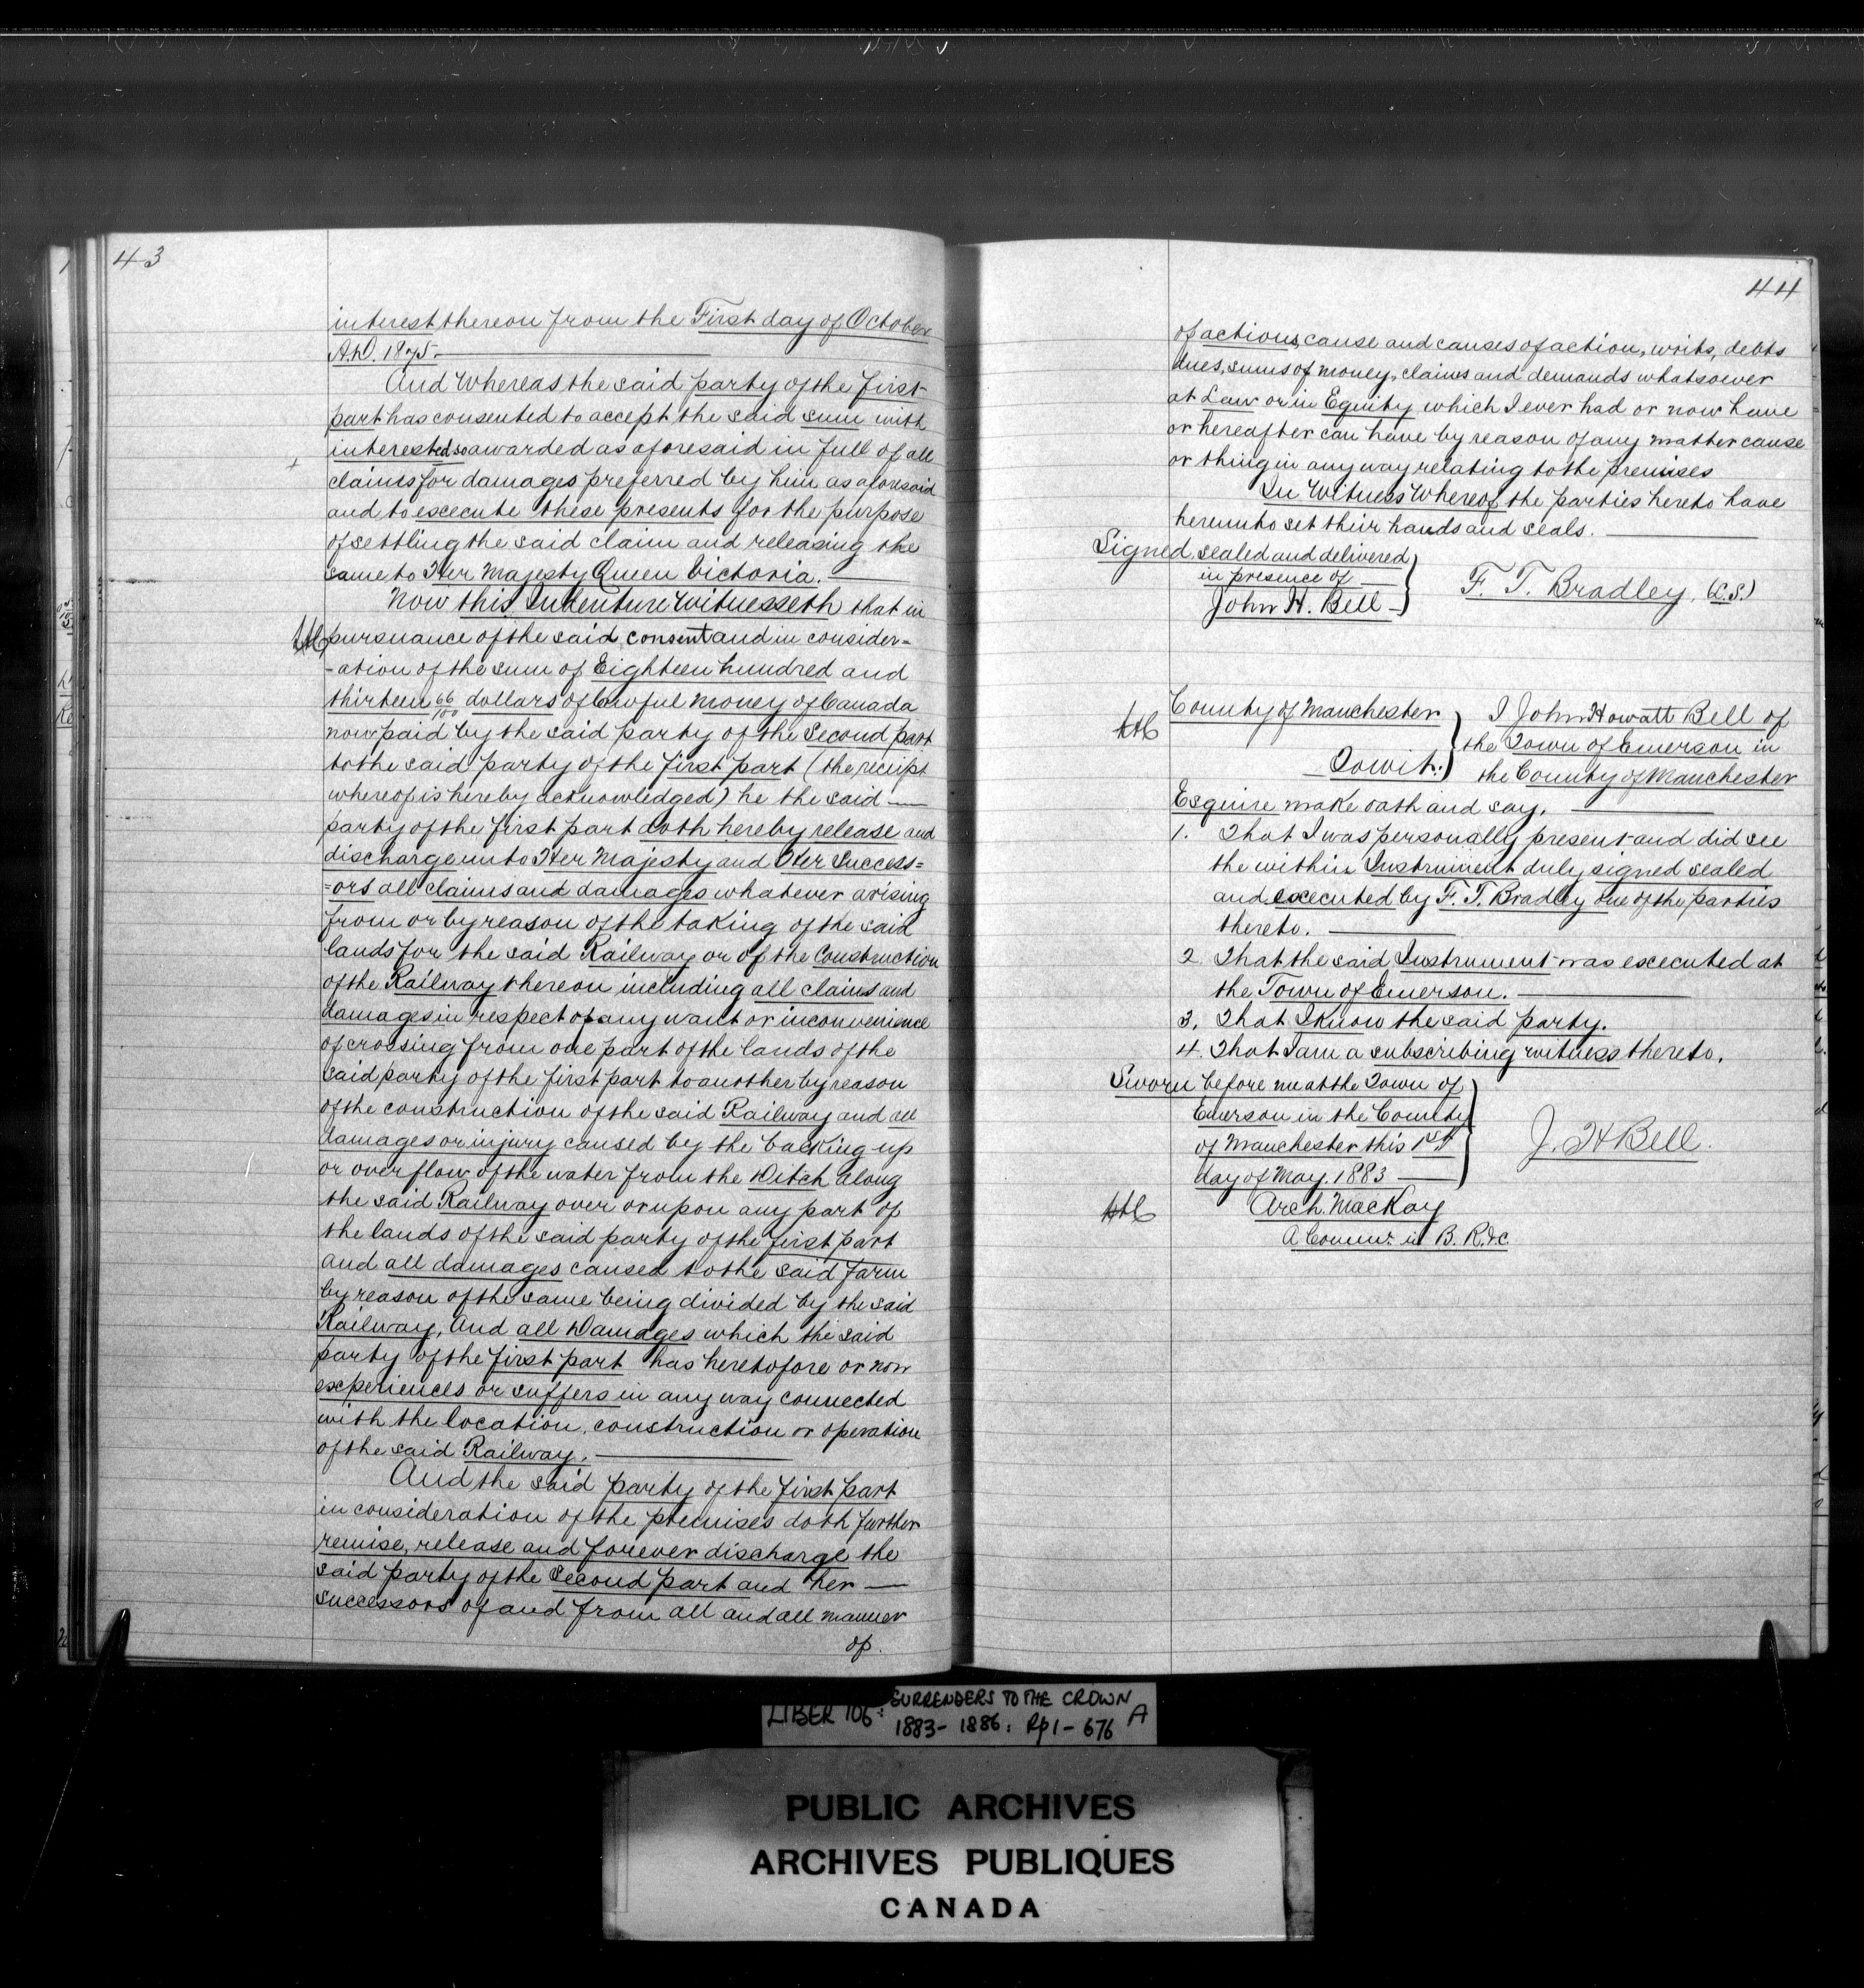 43
interest thereon from the First day of October
A.D. 1875.
And Whereas the said party of the first
part has consented to accept the said sum with
interest so awarded as aforesaid in full of all
claims for damages preferred by him as aforesaid
and to excecute these presents for the purpose
of settling the said claim and releasing the
same to Her Majesty Queen Victoria.
Now this Indenture Witnesseth that in
pursuance of the said consent and in consider=
-ation of the sum of Eighteen hundred and
thirteen 66/100 dollars of lawful money of Canada
now paid by the said party of the Second part
to the said party of the first part (the receipt
whereof is hereby acknowledged) he the said
party of the first part doth hereby release and
discharge unto Her Majesty and Her Success=
=ors all claims and damages whatever arising
from or by reason of the taking of the said
lands for the said Railway or of the Construction
of the Railway thereon including all claims and
damages in respect of any want or inconvenience
of crossing from one part of the lands of the
said party of the first part to another by reason
of the construction of the said Railway and all
damages or injury caused by the backing up
or over flow of the water from the Ditch along
the said Railway over or upon any part of
the lands of the said party of the first part
and all damages caused to the said farm
by reason of the same being divided by the said
Railway, And all Damages which the said
party of the first part has heretofore or now
experiences or suffers in any way connected
with the location, construction or operation
of the said Railway.
And the said party of the first part
in consideration of the premises doth further
remise, release and forever discharge the
said party of the second part and her
successors of and from all and all manner
of
44
of actions, cause and causes of action, writs, debts
dues, sums of money, claims and demands whatsoever
at Law or in Equity which I ever had or now have
or hereafter can have by reason of any matter cause
or thing in any way relating to the premises
In Witness Whereof the parties hereto have
hereunto set their hands and seals.
Signed, sealed and delivered
in presence of
John H. Bell
F. T. Bradley, (L.S.)
County of Manchester
To wit:
I John Howatt Bell of
the Town of Emerson in
the County of Manchester
Esquire make oath and say,
1. That I was personally present and did see
the within Instrument duly signed sealed
and excecuted by F. T. Bradley one of the parties
thereto.
2. That the said Instrument was excecuted at
the Town of Emerson.
3. That I know the said party.
4. That I am a subscribing witness thereto.
Sworn before me at the Town of
Emerson in the County
of Manchester this 1st
day of May. 1883
J. H Bell.
Arch. MacKay
A Commr. in B. R. &c.
LIBER 106: SURRENDERS TO THE CROWN A
1883-1886: Pp 1-676
PUBLIC ARCHIVES
ARCHIVES PUBLIQUES
CANADA